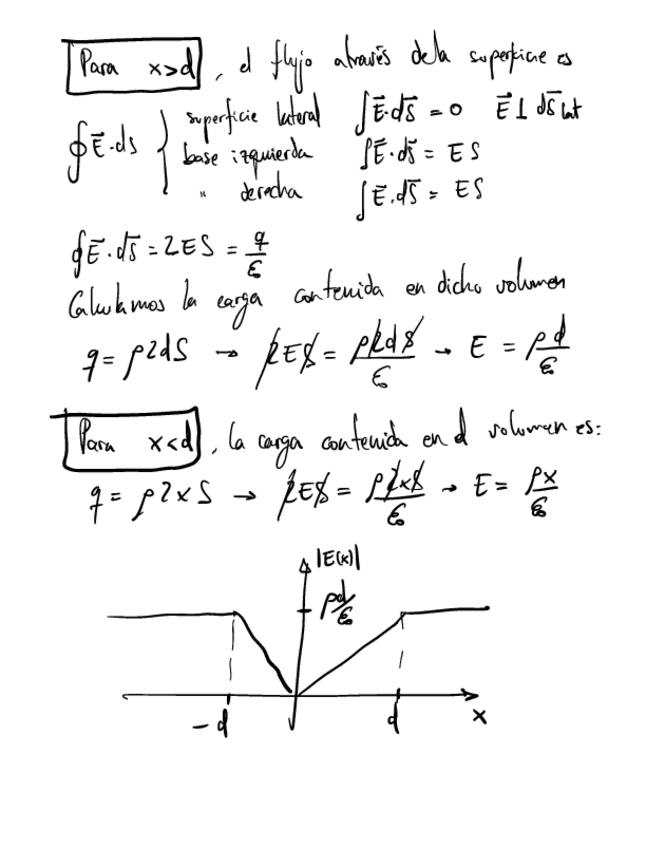 Para x>d, el flujo através de la superficie es
∮E⃗·ds { superficie lateral ∫E⃗·ds⃗ = 0 E⃗⊥ds⃗ lat
base izquierda ∫E⃗·ds⃗ = ES
" derecha ∫E⃗·ds⃗ = ES
∮E⃗·ds⃗ = 2ES = q/ε₀
Calculamos la carga contenida en dicho volumen
q = ρ2dS → 2ES = ρ2dS/ε₀ → E = ρd/ε₀
Para x<d, la carga contenida en el volumen es:
q = ρ2xS → 2ES = ρ2xS/ε₀ → E = ρx/ε₀
|E(x)|
ρd/ε₀
-d d x